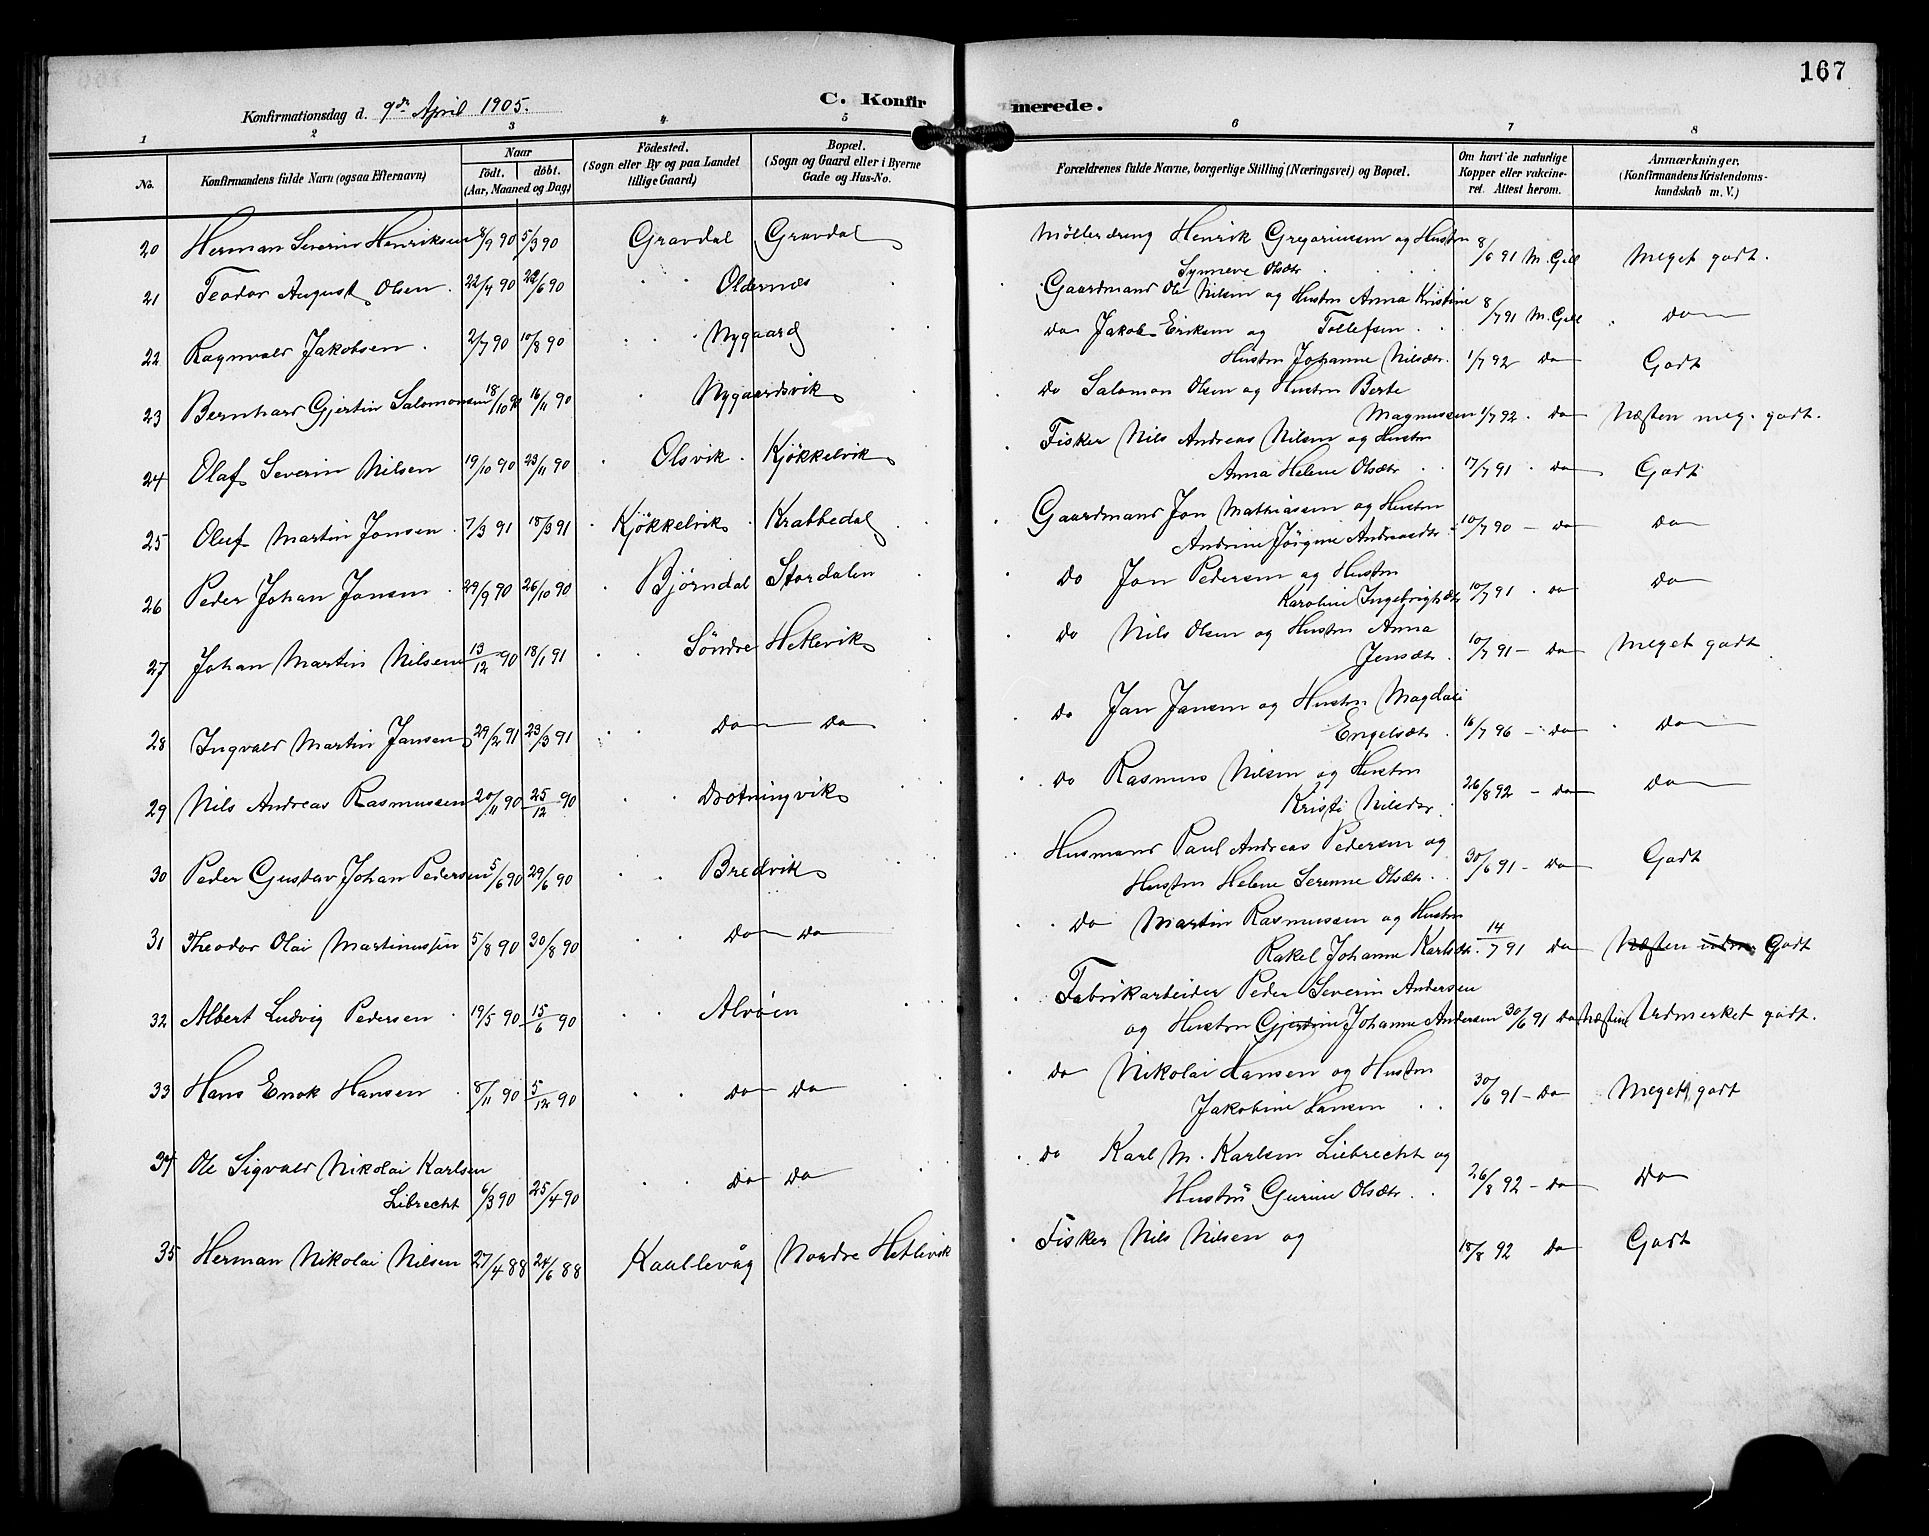 167
Konfirmationsdag d. 9de April 1905.
C. Konfirmerede.
1 2 3 4 5 6 7 8
No.
Konfirmandens fulde Navn (ogsaa Efternavn)
Naar
födt. döbt.
(Aar, Maaned og Dag)
Födested.
(Sogn eller By og paa Landet
tillige Gaard)
Bopæl.
(Sogn og Gaard eller i Byerne
Gade og Hus-No.
Forældrenes fulde Navne, borgerlige Stilling (Næringsvei) og Bopæl.
Om havt de naturlige
Kopper eller vakcine-
ret. Attest herom.
Anmærkninger.
(Konfirmandens Kristendoms-
kundskab m. V.)
20 Herman Severin Henriksen 8/9 90 5/3 90 Gravdal Gravdal Möllerdreng Henrik Gregoriussen og Hustru
Synneve Olsdtr 8/6 91 M. Gill Meget godt.
21 Teodor August Olsen 22/4 90 22/6 90 Oldernæs Gaardmand Ole Nilsen og Hustru Anna Kristine
Tollefsen 8/7 91 M. Gill do
22 Ragnvald Jakobsen 2/7 90 10/8 90 Nygaard do Jakob Eriksen og
Hustru Johanne Nilsdtr. 1/7 92 do Godt
23 Bernhard Gjertin Salomonsen 18/10 90 16/11 90 Nygaardsvik do Salomon Olsen og Hustru Berte
Magnussen 1/7 92. do Næsten meg. godt.
24 Olaf Severin Nilsen 19/10 90 23/11 90 Olsvik Kjökkelvik Fisker Nils Andreas Nilsen og Hustru
Anna Helene Olsdtr 17/7 91. do Godt
25 Oluf Martin Jonsen 7/3 91 18/3 91 Kjökkelvik Krabbedal Gaardmand Jon Mathiasen og Hustru
Andrine Jörgine Andreasdtr 10/7 90 - do do
26 Peder Johan Jonsen 29/9 90 26/10 90 Björndal Stordalen do Jon Pedersen og Hustru
Karoline Ingebrigtsdtr 10/7 91. do do
27 Johan Martin Nilsen 13/12 90 18/1 91 Söndre Hetlevik do Nils Olsen og Hustru Anna
Jensdtr. 10/7 91 - do Meget godt
28 Ingvald Martin Jansen 29/2 91 23/3 91 do do do Jan Jansen og Hustru Magdali
Engelsdtr. 16/7 96 - do do
29 Nils Andreas Rasmussen 20/11 90 25/12 90 Drotningvik do Rasmus Nilsen og Hustru
Kristi Nilsdtr 26/8 92 - do do
30 Peder Gustav Johan Pedersen 5/6 90 29/6 90 Bredvik Husmand Paul Andreas Pedersen og
Hustru Helene Serenne Olsdtr. 30/6 91 - do Godt
31 Theodor Olai Martinussen 5/8 90 30/8 90 do do do Martin Rasmussen og Hustru
Rakel Johanne Karlsdtr. 14/7 91 do Næsten Godt
32 Albert Ludvig Pedersen 19/5 90 15/6 90 Alvöen Fabrikarbeider Peder Severin Andersen
og Hustru Gjertine Johanne Andersen 30/6 91 do Næsten Udmerket godt.
33 Hans Enok Hansen 8/11 90 5/12 90 do do do Nikolai Hansen og Hustru
Jakobine Hansen 30/6 91 - do Meget godt
34 Ole Sigvald Nikolai Karlsen
Librecht 6/3 90 25/4 90 do do do Karl M. Karlsen Liebrecht og
Hustru Gurine Olsdtr. 26/8 92 - do do
35 Herman Nikolai Nilsen 27/4 88 24/6 88 Kaallevåg Nordre Hetlevik Fisker Nils Nilsen og 18/8 92 do Godt